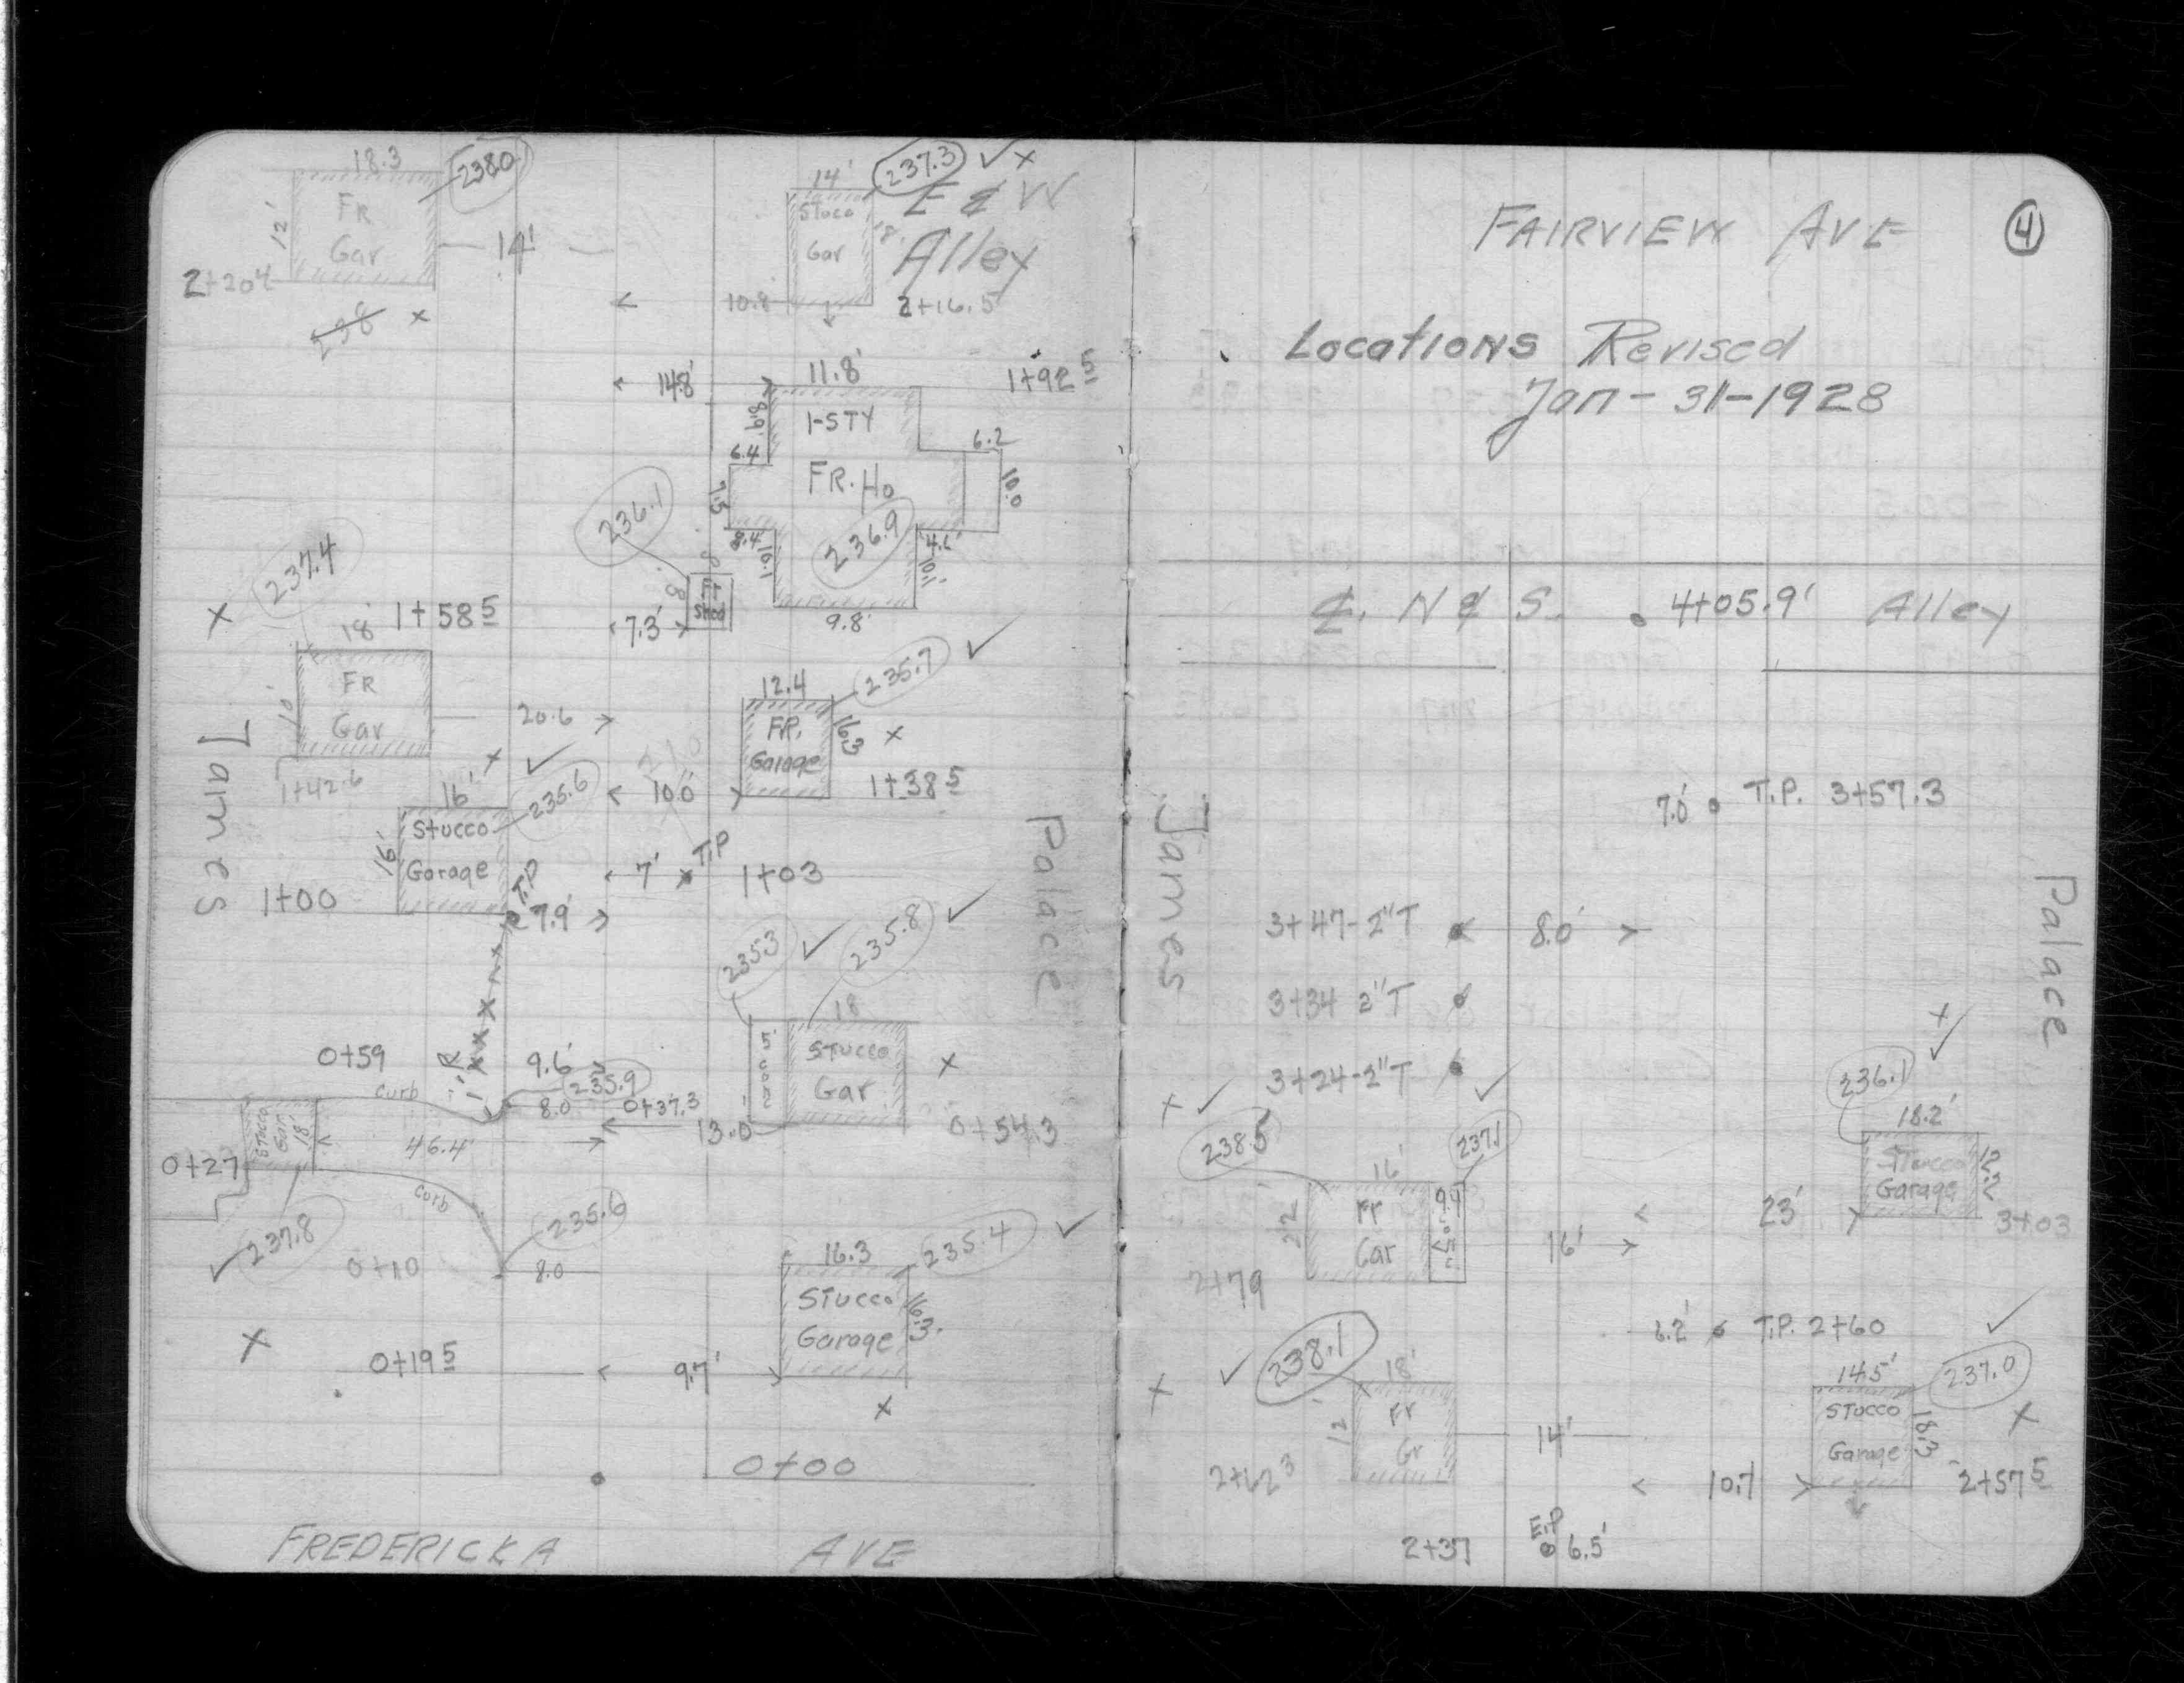 18.3
2380
FR
Gar
12'
14'
2+20⁴
238 x
14'
237.3 ✓ x
E & W
Alley
Stuco
Gar
10.8
2+16.5
148'
11.8'
1+92 5
8.9'
1-STY
6.4
6.2
FR. Ho
7.5
10.0
236.1
236.9
8.4
10.1
4.6'
8
8
Shed
7.3'
9.8'
237.4
x
18'
1+58 5
FR
Gar
10'
20.6
1+42.6
12.4
235.7 ✓
FR.
Garage
16.3
x
100'
1+38 5
James
x ✓
16'
235.6
Stucco
Garage
16'
1+00
T.P
7.9'
7'
T.P
1+03
Palace
2353 ✓
235.8 ✓
18
Stucco
Gar
x
13.0'
0+54.3
0+59
R
9.6'
curb
235.9
8.0
0+37.3
Stuco
Gar
18'
46.4'
0+27
curb
237.8
✓
235.6
0+10
8.0
16.3
235.4 ✓
Stucco
Garage
16.3.
x
0+19 5
9.7'
x
0+00
FREDERICKA AVE
FAIRVIEW AVE
4
Locations Revised
Jan-31-1928
℄. N & S. 4+05.9' Alley
7.0' T.P. 3+57.3
James
Palace
3+47-2"T 8.0'
3+34 2"T
3+24-2"T
x ✓
238.5
✓
237.1
16'
Fr
Gar
22'
9.9
16'
2+79
x ✓
236.1
18.2'
Stucco
Garage
12.2
23'
3+03
6.2' T.P. 2+60
x ✓
238.1
18'
Fr
Gr
12'
14'
2+62³
✓
14.5'
237.0
Stucco
Garage
18.3
x
10.7
2+57 5
2+37
E.P
6.5'